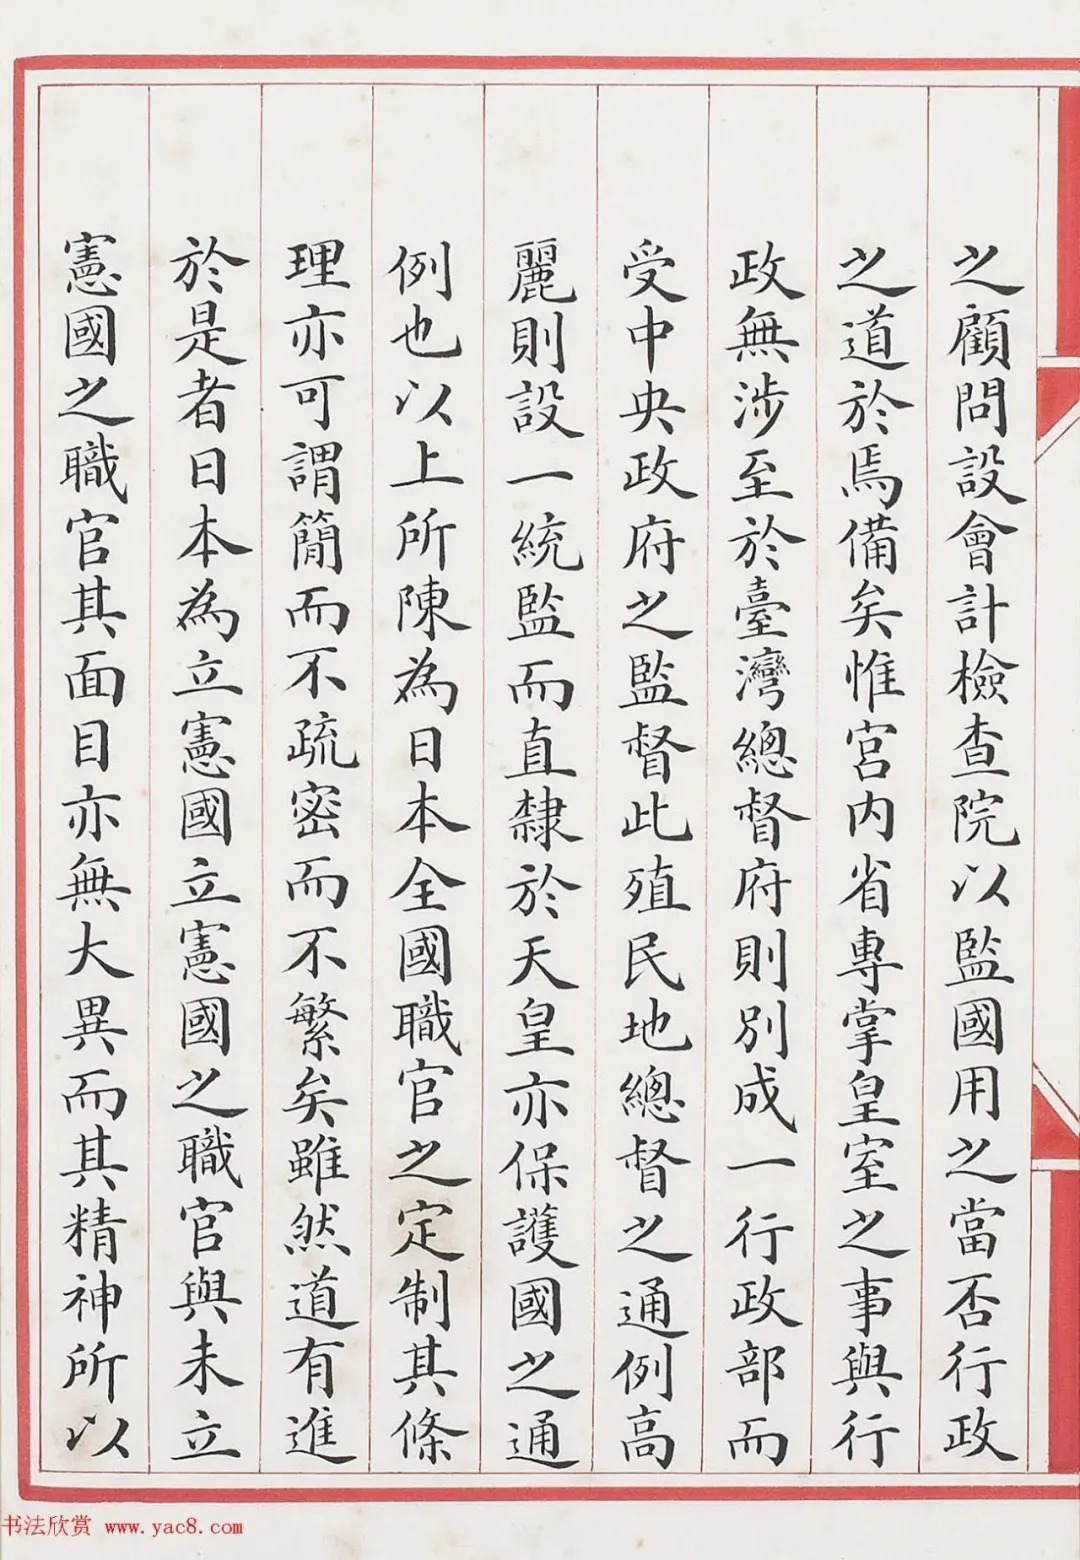 之顧問設會計檢查院以監國用之當否行政
之道於焉備矣惟宮内省專掌皇室之事與行
政無涉至於臺灣總督府則別成一行政部而
受中央政府之監督此殖民地總督之通例高
麗則設一統監而直隸於天皇亦保護國之通
例也以上所陳為日本全國職官之定制其條
理亦可謂簡而不疏密而不繁矣雖然道有進
於是者日本為立憲國立憲國之職官與未立
憲國之職官其面目亦無大異而其精神所以
书法欣赏 www.yac8.com